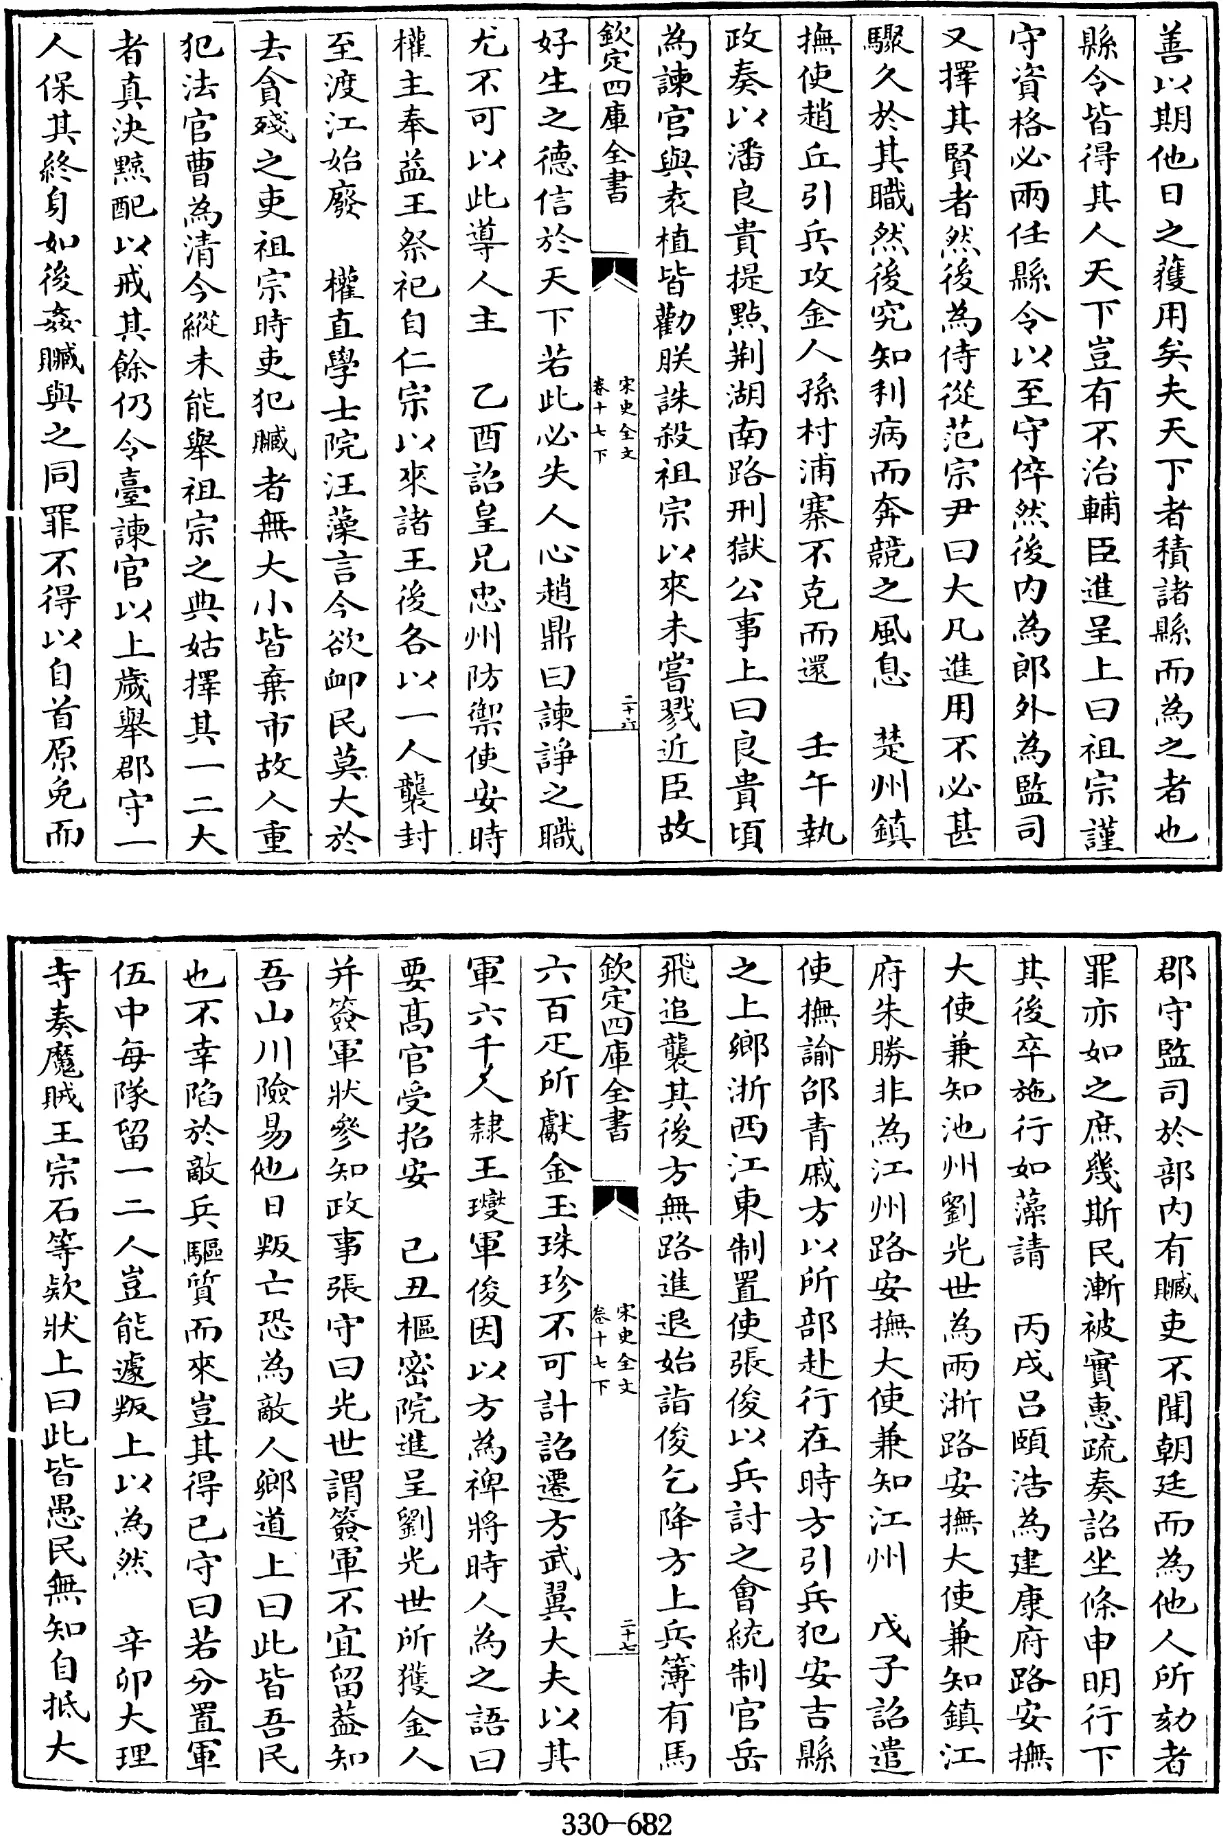 善以期他日之獲用矣夫天下者積諸縣而為之者也
縣令皆得其人天下豈有不治輔臣進呈上曰祖宗謹
守資格必兩任縣令以至守倅然後内為郎外為監司
又擇其賢者然後為侍從范宗尹曰大凡進用不必甚
驟久於其職然後究知利病而奔競之風息　楚州鎮
撫使趙丘引兵攻金人孫村浦寨不克而還　壬午執
政奏以潘良貴提點荆湖南路刑獄公事上曰良貴頃
為諫官與袁植皆勸朕誅殺祖宗以來未嘗戮近臣故
欽定四庫全書
宋史全文
卷十七下
二十六
好生之德信於天下若此必失人心趙鼎曰諫諍之職
尤不可以此導人主　乙酉詔皇兄忠州防禦使安時
權主奉益王祭祀自仁宗以來諸王後各以一人襲封
至渡江始廢　權直學士院汪藻言今欲衈民莫大於
去貪殘之吏祖宗時吏犯贓者無大小皆棄市故人重
犯法官曹為清今縱未能舉祖宗之典姑擇其一二大
者真決黥配以戒其餘仍令臺諫官以上歲舉郡守一
人保其終身如後姦贓與之同罪不得以自首原免而
郡守監司於部内有贓吏不聞朝廷而為他人所劾者
罪亦如之庶幾斯民漸被實惠疏奏詔坐條申明行下
其後卒施行如藻請　丙戌吕頤浩為建康府路安撫
大使兼知池州劉光世為兩浙路安撫大使兼知鎮江
府朱勝非為江州路安撫大使兼知江州　戊子詔遣
使撫諭邵青戚方以所部赴行在時方引兵犯安吉縣
之上鄉浙西江東制置使張俊以兵討之會統制官岳
飛追襲其後方無路進退始詣俊乞降方上兵簿有馬
欽定四庫全書
宋史全文
卷十七下
二十七
六百疋所獻金玉珠珍不可計詔遷方武翼大夫以其
軍六千人隸王𤫉軍俊因以方為裨將時人為之語曰
要髙官受招安　己丑樞密院進呈劉光世所獲金人
并簽軍狀參知政事張守曰光世謂簽軍不宜留葢知
吾山川險易他日叛亡恐為敵人鄉道上曰此皆吾民
也不幸陷於敵兵驅質而來豈其得已守曰若分置軍
伍中每隊留一二人豈能遽叛上以為然　辛卯大理
寺奏魔賊王宗石等欵狀上曰此皆愚民無知自抵大
330-682